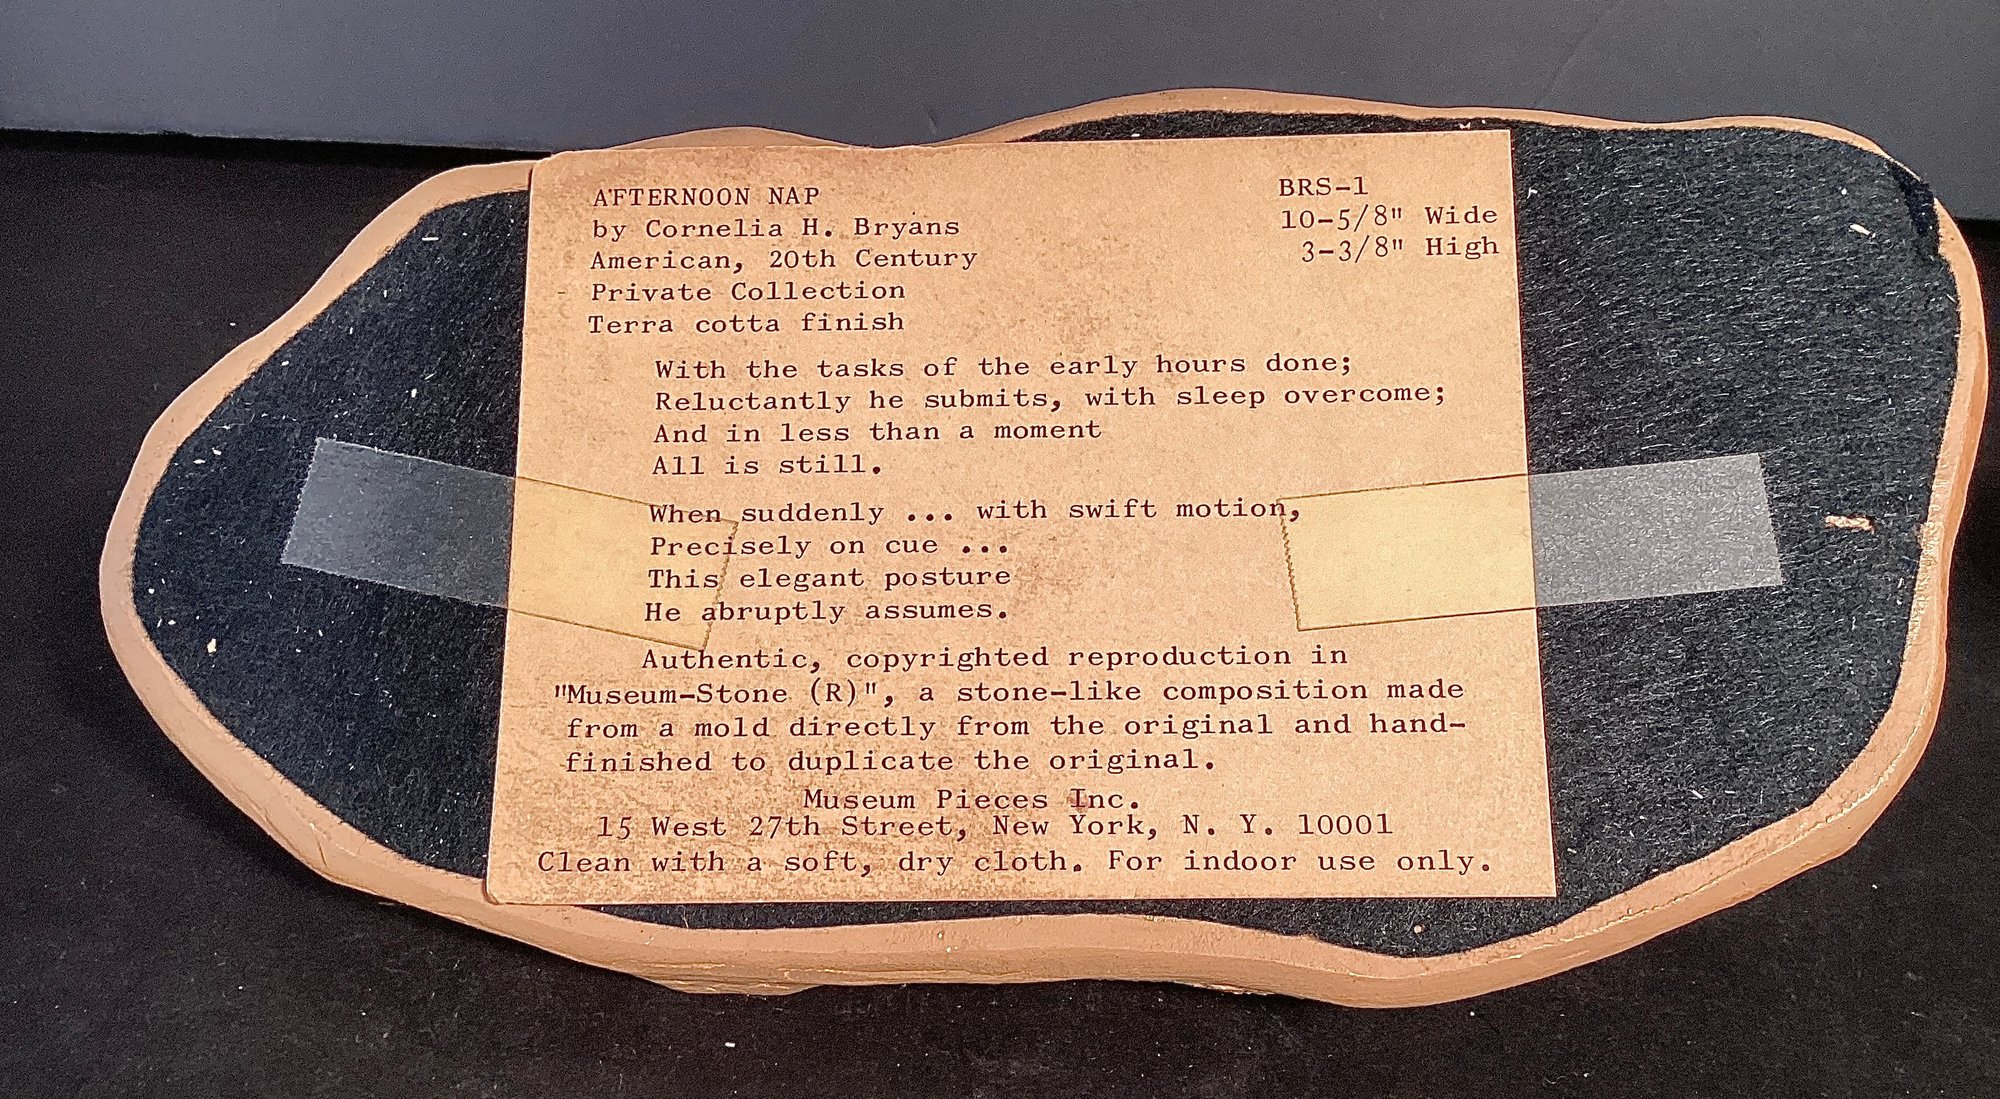 AFTERNOON NAP
by Cornelia H. Bryans
American, 20th Century
Private Collection
Terra cotta finish
BRS-1
10-5/8" Wide
3-3/8" High
With the tasks of the early hours done;
Reluctantly he submits, with sleep overcome;
And in less than a moment
All is still.
When suddenly ... with swift motion,
Precisely on cue ...
This elegant posture
He abruptly assumes.
Authentic, copyrighted reproduction in
"Museum-Stone (R)", a stone-like composition made
from a mold directly from the original and hand-
finished to duplicate the original.
Museum Pieces Inc.
15 West 27th Street, New York, N. Y. 10001
Clean with a soft, dry cloth. For indoor use only.